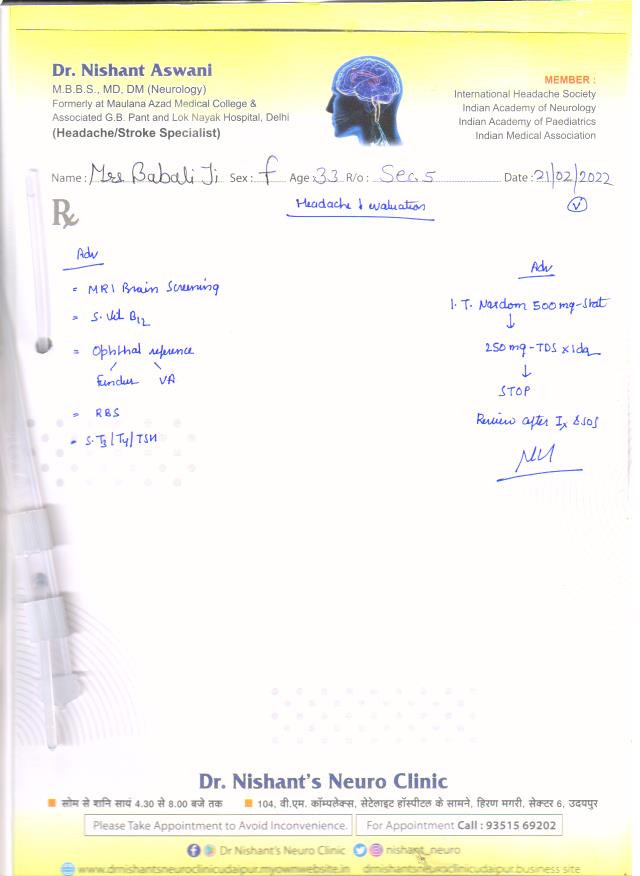 Dr. Nishant Aswani
M.B.B.S., MD, DM (Neurology)
Formerly at Maulana Azad Medical College &
Associated G.B. Pant and Lok Nayak Hospital, Delhi
(Headache/Stroke Specialist)
MEMBER :
International Headache Society
Indian Academy of Neurology
Indian Academy of Paediatrics
Indian Medical Association
Name : Mrs Babali Ji Sex : f Age : 33 R/o : Sec. 5 Date : 21/02/2022
Rx
Headache evaluation
Adv
= MRI Brain Screening
= S. Vit B12
= Ophthal reference
Fundus VA
= RBS
= S. T3/T4/TSH
Adv
1. T. Naxdom 500 mg - Stat
↓
250 mg - TDS x 1da
↓
STOP
Review after Ix & SOS
Dr. Nishant's Neuro Clinic
सोम से शनि सायं 4.30 से 8.00 बजे तक 104, वी.एम. कॉम्पलेक्स, सेटेलाइट हॉस्पीटल के सामने, हिरण मगरी, सेक्टर 6, उदयपुर
Please Take Appointment to Avoid Inconvenience. For Appointment Call : 93515 69202
Dr Nishant's Neuro Clinic nishant_neuro
www.drnishantsneuroclinicudaipur.myownwebsite.in drnishantsneuroclinicudaipur.business site